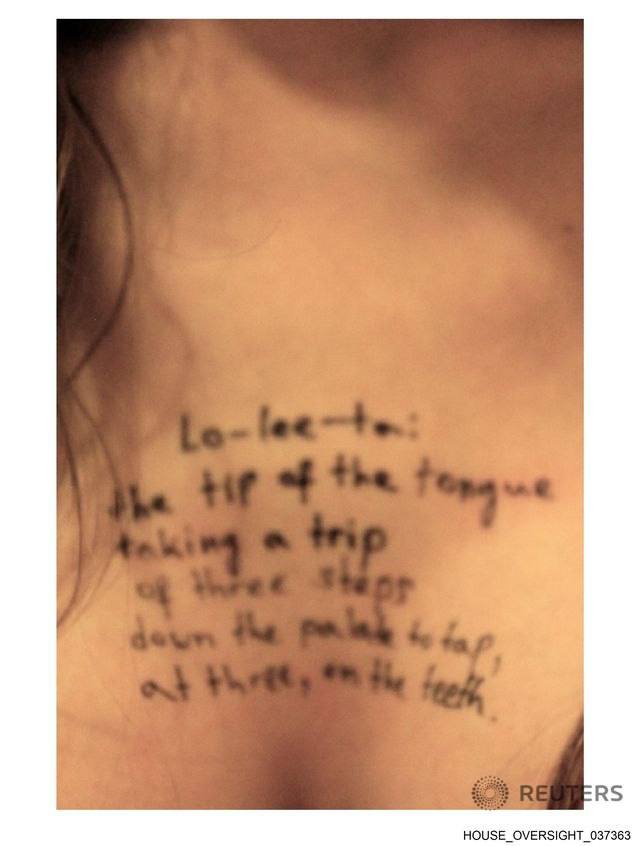 Lo-lee-ta:
the tip of the tongue
taking a trip
of three steps
down the palate to tap,
at three, on the teeth.
REUTERS
HOUSE_OVERSIGHT_037363